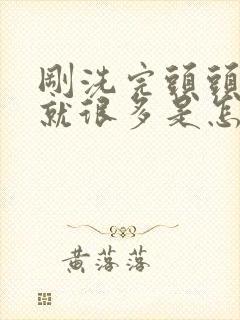 剛洗完頭頭
就很多是怎
黃落落